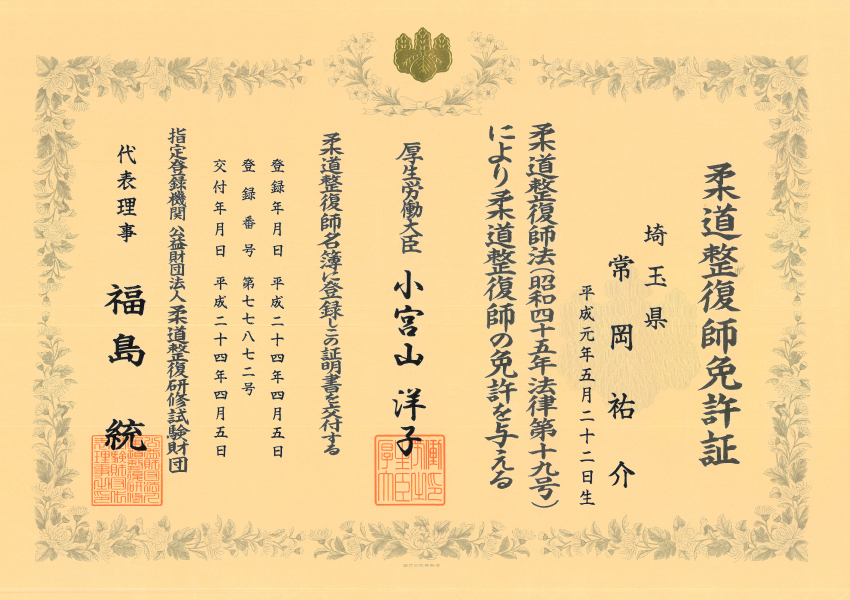 柔道整復師免許証
埼玉県
常岡祐介
平成元年五月二十二日生
柔道整復師法(昭和四十五年法律第十九号)
により柔道整復師の免許を与える
厚生労働大臣 小宮山洋子
柔道整復師名簿に登録しこの証明書を交付する
登録年月日 平成二十四年四月五日
登録番号 第七七八七二号
交付年月日 平成二十四年四月五日
指定登録機関 公益財団法人柔道整復研修試験財団
代表理事 福島統